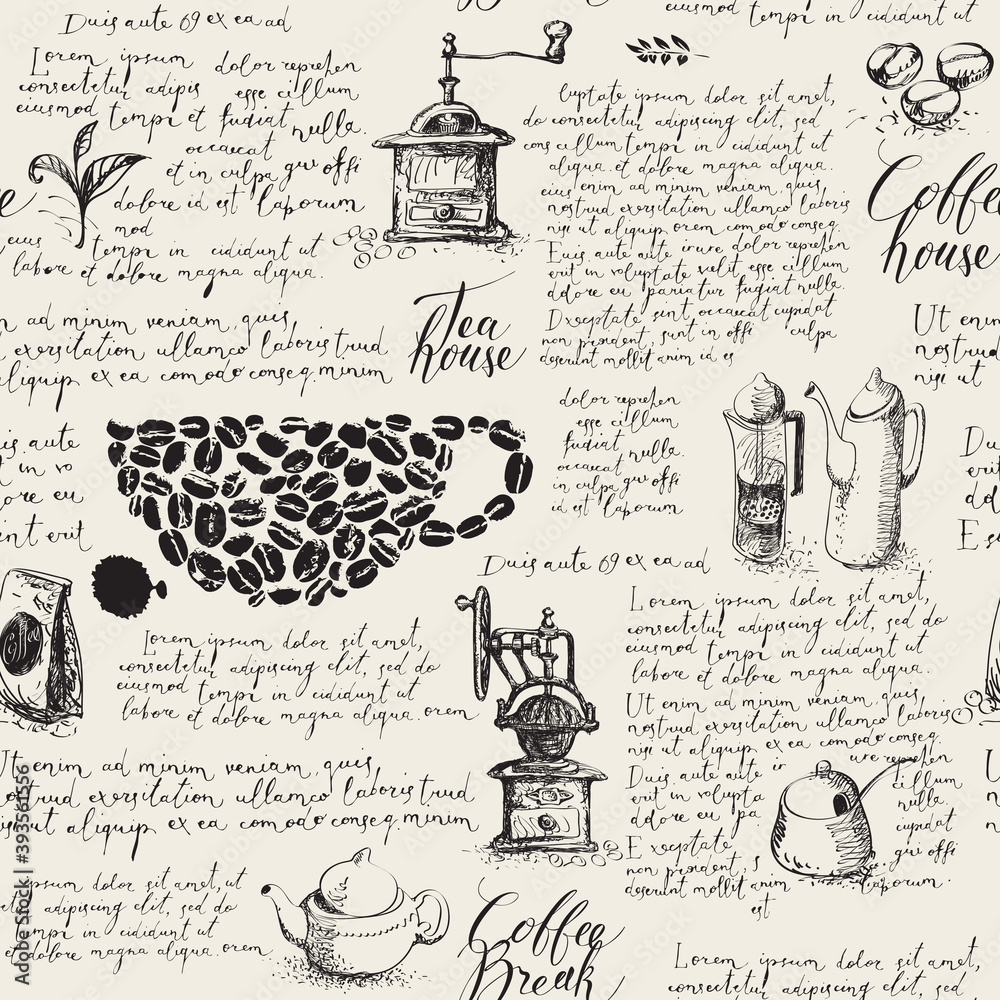 Duis aute 69 ex ea ad
Lorem ipsum dolor reprehen
consectetur adipis esse cillum
eiusmod tempr et fugiat nulla.
occaecat
et in culpa qui offi
dolore id est laporum
mod
eius tempr in cididunt ut
labore et dolore magna aliqua.
tempr in cididunt ut
luptate ipsum dolor sit amet,
do consectetur adipiscing elit, sed
cons cillum tempr in cididunt ut
aliqua. et dolore magna aliqua.
eius enim ad minim veniam, quis
nostrud exersitation ullamco laboris
nt ut aliquip orem comodo conseq.
Euis aute aute irure dolor reprehen
erit in voluptate velit esse cillum
dolore eu pariatur fugiat nulla.
Dxceptate sint occaecat cupidat
non proident, sunt in offi culpa
deserunt mollit anim id es
Coffee
house
Tea
house
n ad minim veniam, quis
exersitation ullamco laboris trud
aliquip ex ea comodo conseq. minim
Ut enim
nostrud
nisi ut
dolor reprehen
esse cillum
fugiat nulla.
occaecat
in culpa qui offi
est laporum
uis aute
t in vo
ore eu
int erit
Duis aute 69 ex ea ad
Lorem ipsum dolor sit amet,
consectetur adipiscing elit, sed do
eiusmod tempr in cididunt ut
labore et dolore magna aliqua. orem
Lorem ipsum dolor sit amet,
consectetur adipiscing elit, sed do
eiusmod tempr in cididunt ut
labore et dolore magna aliqua.
Ut enim ad minim veniam, quis
nostrud exersitation ullamco laboris
nisi ut aliquip ex ea comodo conseq.
Duis aute aute ir ure reprehen
erit in volupta cillum
dolore eu pa nulla.
cupidat
Exceptate qui offi
non proident, s
deserunt mollit anim laporum.
est
Ut enim ad minim veniam, quis
nostrud exersitation ullamco laboris trud
ut aliquip ex ea comodo conseq. minim
ipsum dolor sit amet, ut
adipiscing elit, sed do
tempr in cididunt ut
dolore magna aliqua. orem
Coffee
Break
Lorem ipsum dolor sit amet,
consectetur adipiscing elit, sed do
eiusmod tempr in cididunt ut
Adobe Stock | #393561556
Adobe Stock